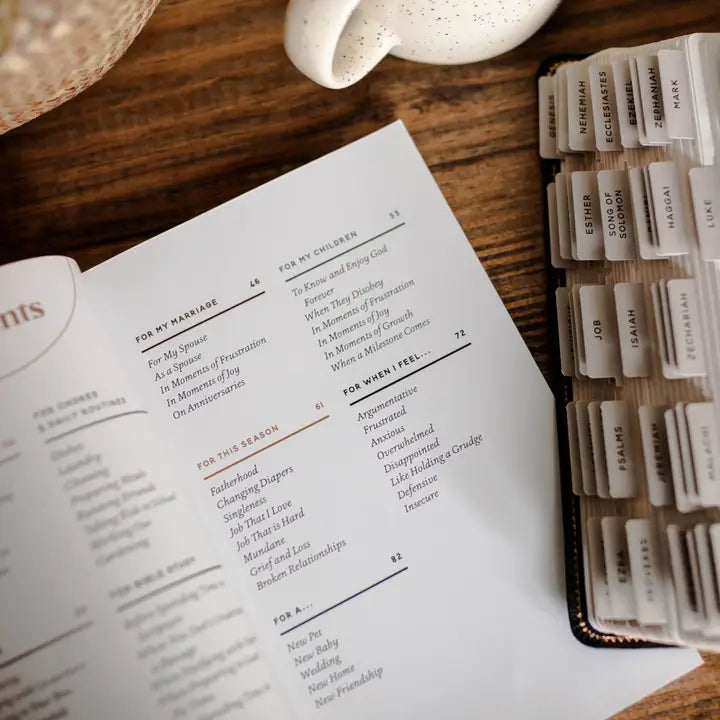 nts
FOR CHORES
& DAILY ROUTINES
Dishes
Laundry
Cleaning
Preparing Meals
FOR BIBLE STUDY
FOR MY MARRIAGE 46
For My Spouse
As a Spouse
In Moments of Frustration
In Moments of Joy
On Anniversaries
FOR MY CHILDREN 55
To Know and Enjoy God
Forever
When They Disobey
In Moments of Frustration
In Moments of Joy
In Moments of Growth
When a Milestone Comes
FOR THIS SEASON 61
Fatherhood
Changing Diapers
Singleness
Job That I Love
Job That is Hard
Mundane
Grief and Loss
Broken Relationships
FOR WHEN I FEEL... 72
Argumentative
Frustrated
Anxious
Overwhelmed
Disappointed
Like Holding a Grudge
Defensive
Insecure
FOR A... 82
New Pet
New Baby
Wedding
New Home
New Friendship
GENESIS
NEHEMIAH
ECCLESIASTES
EZEKIEL
ZEPHANIAH
MARK
ESTHER
SONG OF
SOLOMON
DANIEL
HAGGAI
LUKE
JOB
ISAIAH
ZECHARIAH
PSALMS
JEREMIAH
MALACHI
EZRA
PROVERBS